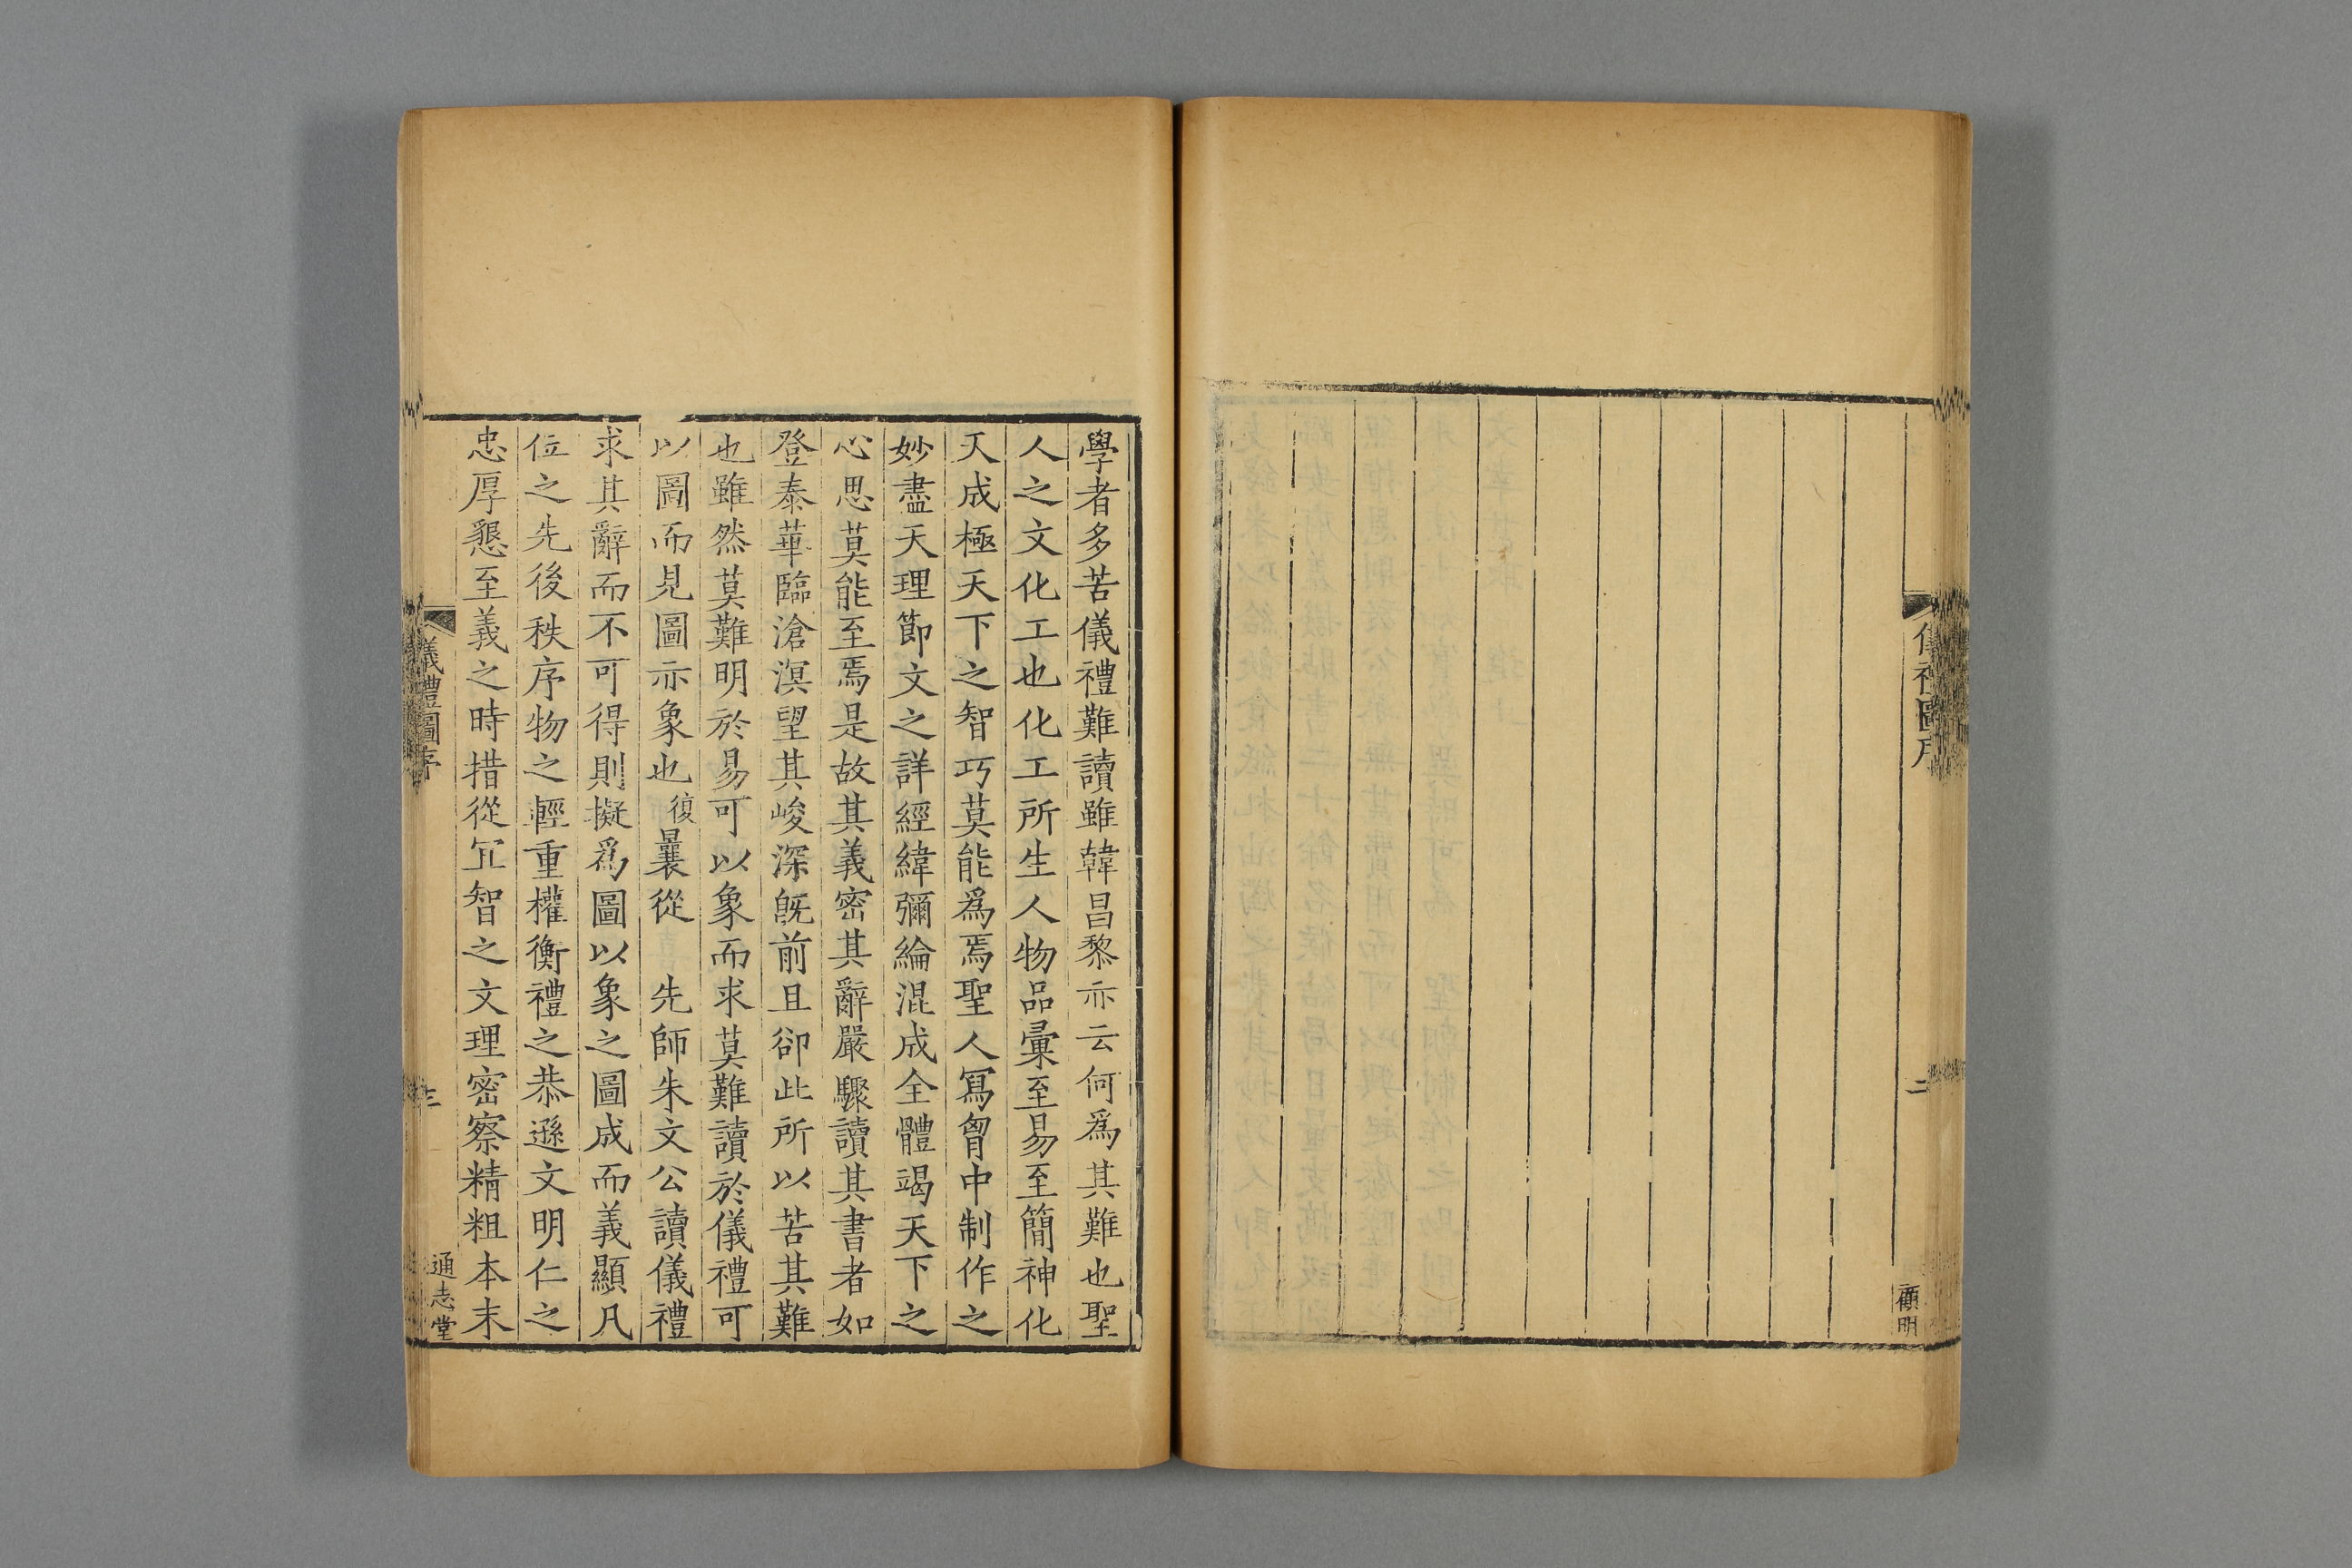 二
顧明
學者多苦儀禮難讀雖韓昌黎亦云何爲其難也聖
人之文化工也化工所生人物品彙至易至簡神化
天成極天下之智巧莫能爲焉聖人冩胷中制作之
妙盡天理節文之詳經緯彌綸混成全體竭天下之
心思莫能至焉是故其義密其辭嚴驟讀其書者如
登泰華臨滄溟望其峻深旣前且卻此所以苦其難
也雖然莫難明於易可以象而求莫難讀於儀禮可
以圖而見圖亦象也復曩從 先師朱文公讀儀禮
求其辭而不可得則擬爲圖以象之圖成而義顯凡
位之先後秩序物之輕重權衡禮之恭遜文明仁之
忠厚懇至義之時措從冝智之文理密察精粗本末
儀禮圖序
三
通志堂